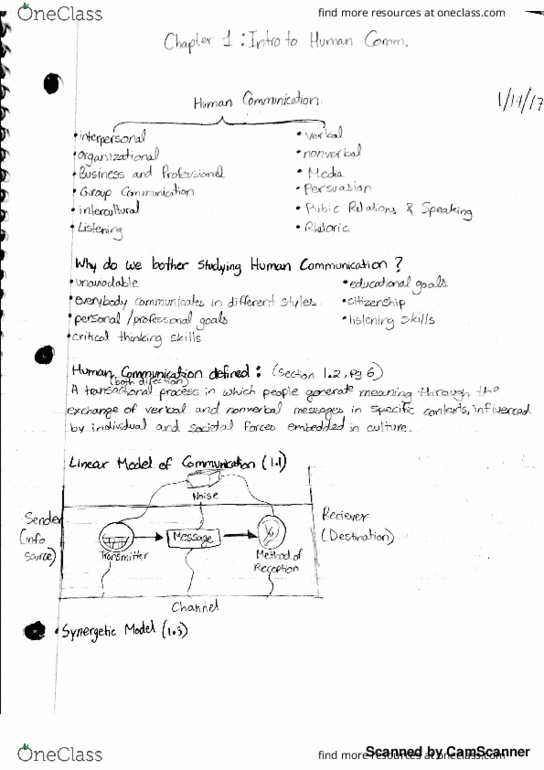 OneClass
find more resources at oneclass.com
Chapter 1: Intro to Human Comm.
1/19/17
Human Communication
• interpersonal
• verbal
• Organizational
• nonverbal
• Business and Professional
• Media
• Group Communication
• Persuasion
• intercultural
• Public Relations & Speaking
• Listening
• Rhetoric
Why do we bother studying Human Communication?
• unavoidable
• educational goals
• everybody communicates in different styles.
• citizenship
• personal/professional goals
• listening skills
• critical thinking skills
Human Communication defined: (section 1.2, pg 6)
(both direction)
A transactional process in which people generate meaning through the
exchange of verbal and nonverbal messages in specific contexts, influenced
by individual and societal forces embedded in culture.
Linear Model of Communication (1.1)
Noise
Sender
(info
source)
Reciever
(Destination)
Transmitter
Message
Method of
Reception
Channel
• Synergetic Model (1.3)
OneClass
find more resources at oneclass.com
Scanned by CamScanner